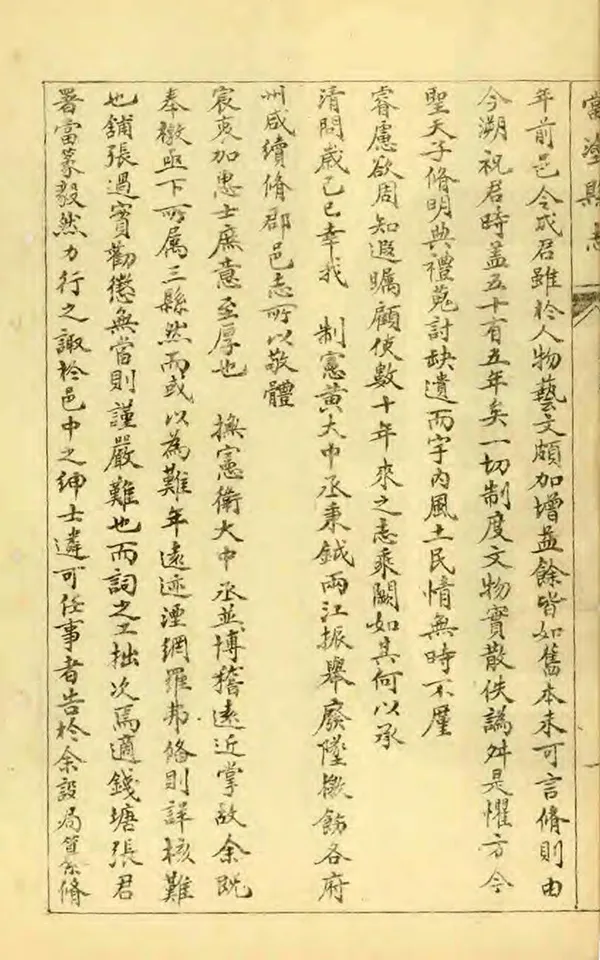 當塗縣志
年前邑令成君雖於人物藝文頗加增益餘皆如舊本未可言脩則由
今溯祝君時蓋五十有五年矣一切制度文物實散佚譌舛是懼方今
聖天子脩明典禮蒐討缺遺而宇內風土民情無時不厪
睿慮欲周知遐矚顧使數十年來之志乘闕如其何以承
清問歲己巳幸我 制憲黃大中丞秉鉞兩江振舉廢墜檄飭各府
州咸續脩郡邑志所以敬體
宸衷加惠士庶意至厚也 撫憲衛大中丞並博稽遠近掌故余既
奉檄亟下所属三縣然而或以為難年遠迹湮網羅邦備則詳核難
也鋪張過實勸懲無當則謹嚴難也而詞之工拙次焉適錢塘張君
署當篆毅然力行之諏於邑中之紳士遴可任事者告於余設局纂脩